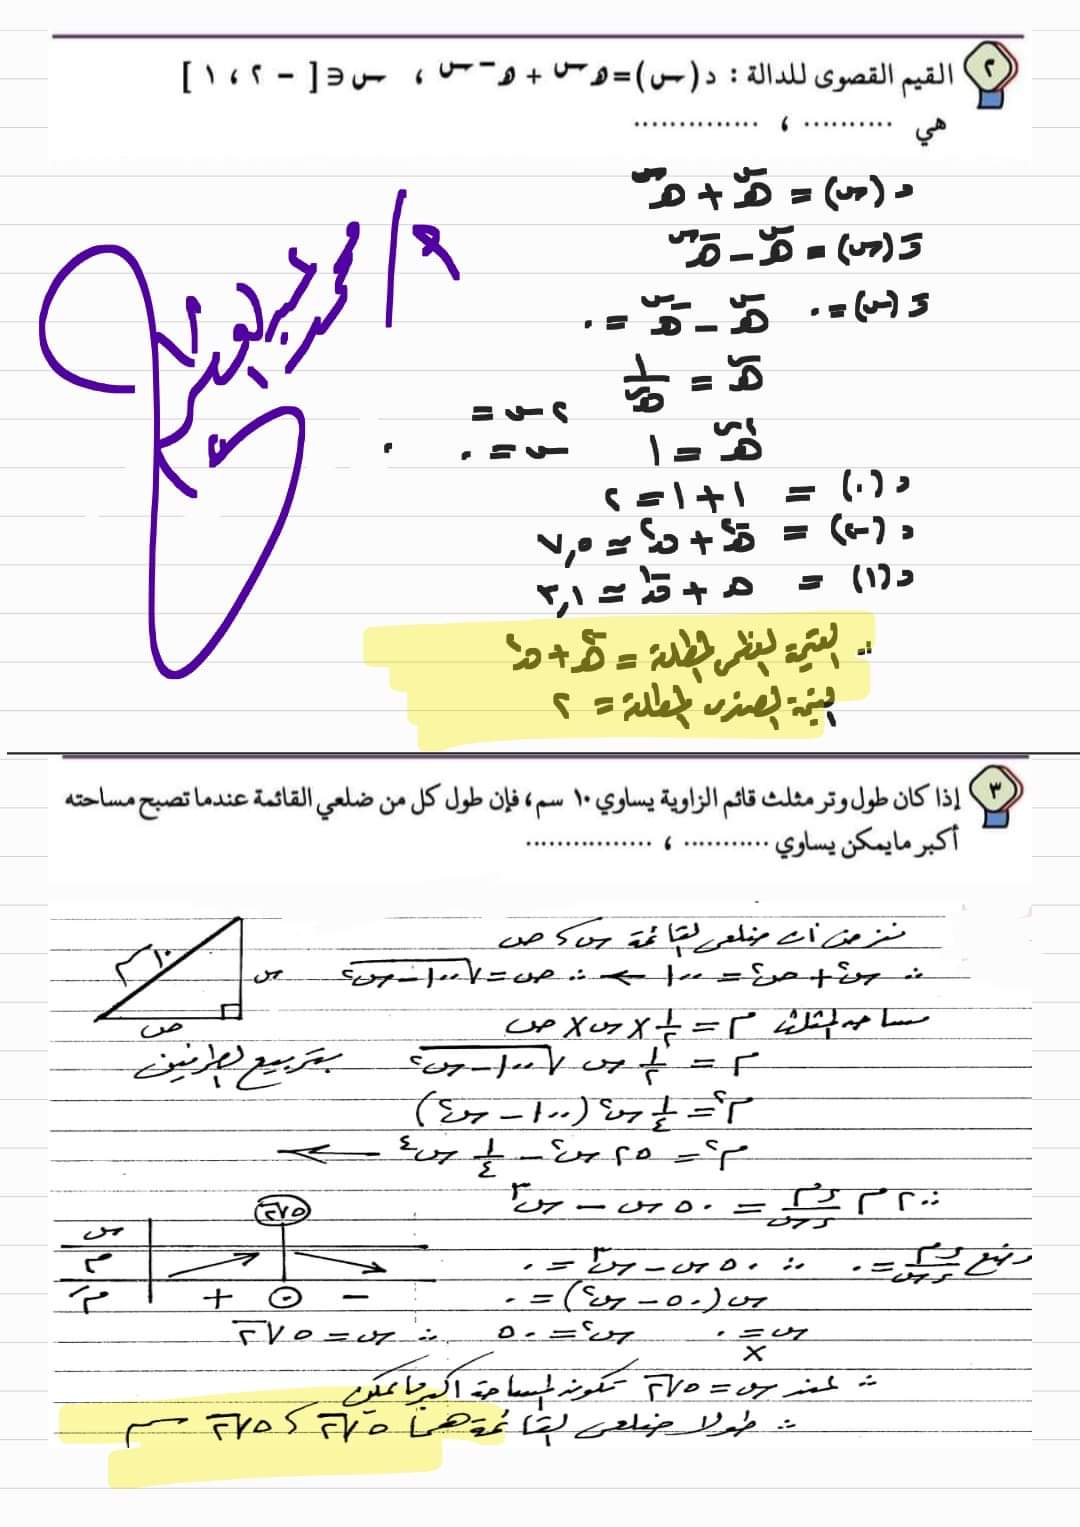 ٢ القيم القصوى للدالة : د(س)=هـ^س + هـ^-س ، س∈[ - ٢ ، ١ ]
هي .......... ، ..............
د(س) = هـ^س + هـ^-س
دَ(س) = هـ^س - هـ^-س
دَ(س) = ٠ هـ^س - هـ^-س = ٠
هـ^س = ١/هـ^س
٢س = ٠
هـ^٢س = ١ س = ٠
د(٠) = ١ + ١ = ٢
د(-٢) = هـ^-٢ + هـ^٢ ≃ ٧,٥
د(١) = هـ + هـ^-١ ≃ ٣,١
∴ القيمة العظمى المطلقة = هـ^-٢ + هـ^٢
القيمة الصغرى المطلقة = ٢
٣ إذا كان طول وتر مثلث قائم الزاوية يساوي ١٠ سم، فإن طول كل من ضلعي القائمة عندما تصبح مساحته
أكبر مايمكن يساوي ........... ، ................
نفرض أن ضلعي القائمة س ، ص
∵ س² + ص² = ١٠٠ ← ∴ ص = √(١٠٠ - س²)
١٠ سم
س
ص
مساحة المثلث م = ١/٢ × س × ص
م = ١/٢ س √(١٠٠ - س²) بتربيع الطرفين
م² = ١/٤ س² (١٠٠ - س²)
م² = ٢٥ س² - ١/٤ س⁴ ←
∴ ٢ م دم/دس = ٥٠ س - س³
وضع دم/دس = ٠ ∴ ٥٠ س - س³ = ٠
س (٥٠ - س²) = ٠
س = ٠ س² = ٥٠ ∴ س = ٥√٢
×
س ٥√٢
م
مَ + ٠ -
∴ عند س = ٥√٢ تكون المساحة أكبر ما يمكن
∴ طولا ضلعي القائمة هما ٥√٢ ، ٥√٢ سم